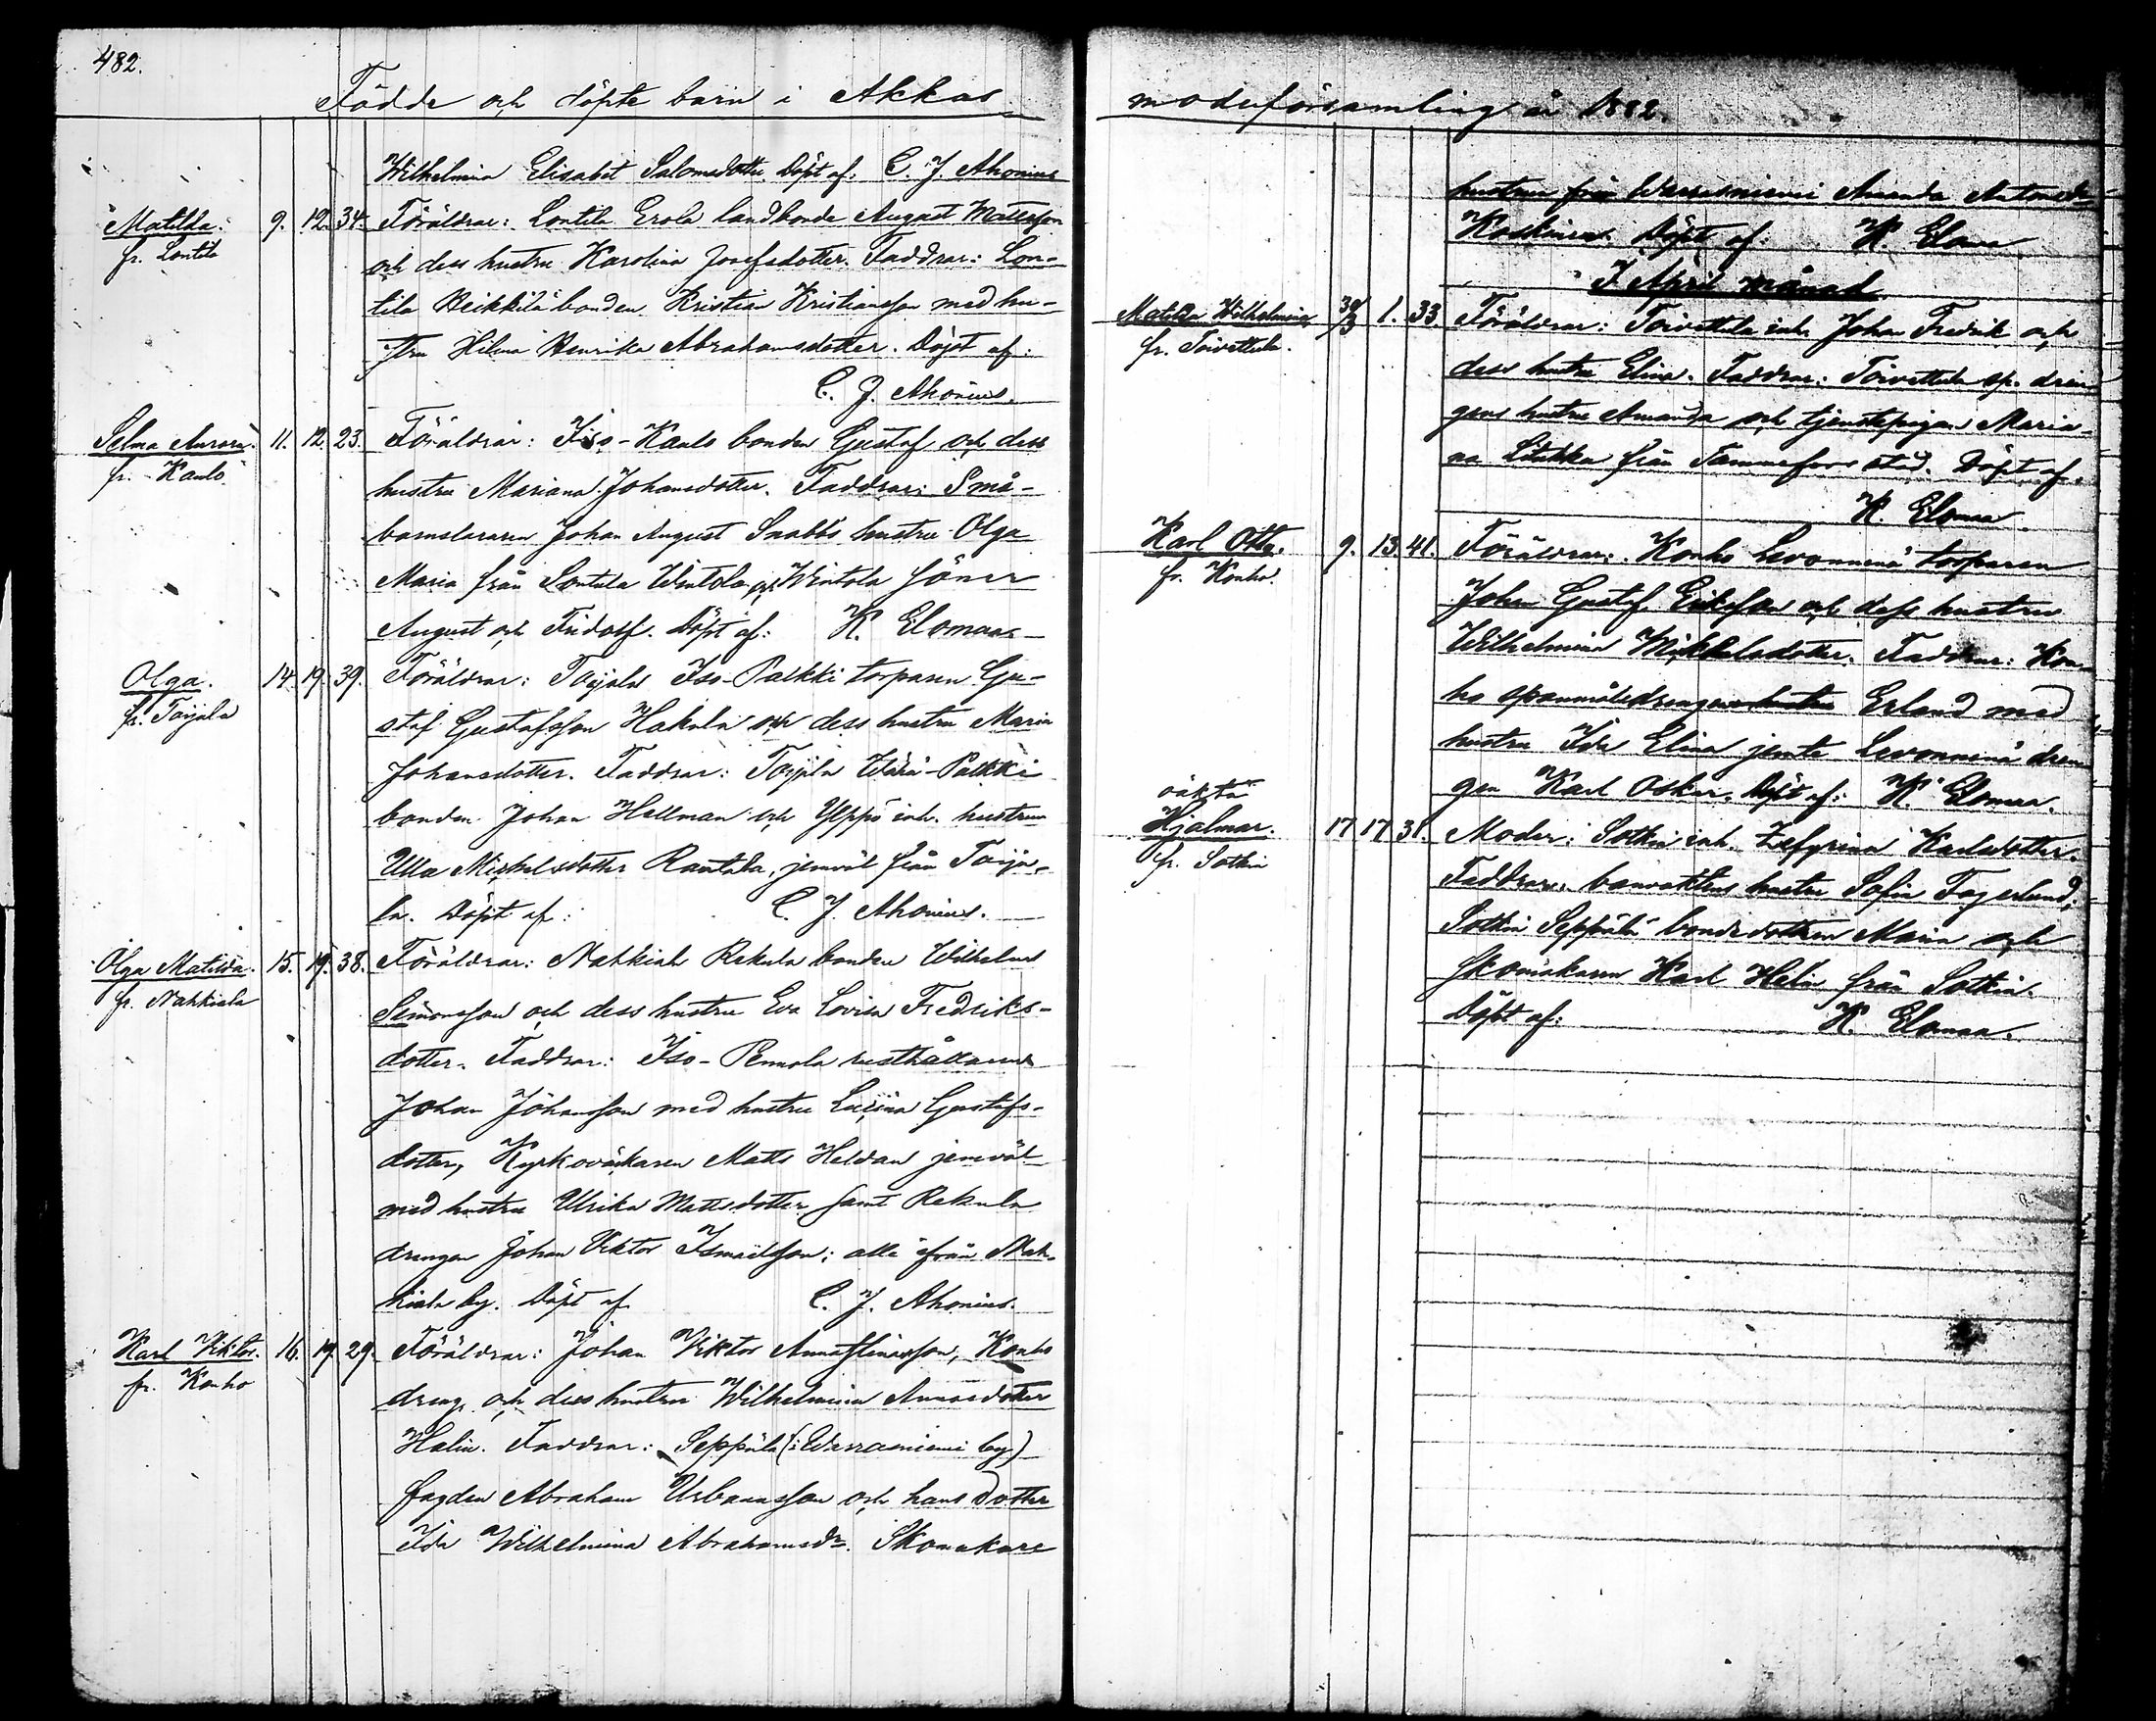 482.
Födde och döpte barn i Akkas
Wilhelmina Elisabet Salomsdotter. Döpt af: C. J. Ahonius
Matilda. 9. 12. 34. Föräldrar: Lontila Erola landbonde August Mattsson
fr. Lontila
och dess hustru Karolina Josefsdotter. Faddrar: Lon-
tila Heikkilä bonden Kristian Kristiansson med hu-
stru Hilma Henrika Abrahamsdotter. Döpt af:
C. J. Ahonius.
Selma Aurora. 11. 12. 23. Föräldrar: Iso-Kauls bonden Gustaf och dess
fr. Kauls
hustru Mariana Johansdotter. Faddrar: Små-
barnsläraren Johan August Snabbs hustru Olga
Maria från Sontula Wintola och Wintola söner
August och Fridolf. Döpt af: K. Elomaa
Olga. 14. 19. 39. Föräldrar: Toijala Iso-Palkki torparen Gu-
fr. Toijala
staf Gustafsson Hakula och dess hustru Maria
Johansdotter. Faddrar: Toijala Wähä-Palkki
bonden Johan Hellman och Yleppö inh. hustrun
Ulla Mickelsdotter Rantala, jemväl från Toija-
la. Döpt af: C. J. Ahonius.
Olga Matilda. 15. 19. 38. Föräldrar: Nahkiala Rekula bonden Wilhelm
fr. Nahkiala
Simonsson och dess hustru Eva Lovisa Fredriks-
dotter. Faddrar: Iso-Pennola rusthållaren
Johan Johansson med hustru Lusina Gustafs-
dotter, Kyrkoväktaren Matts Heldan jemväl
med hustru Ulrika Mattsdotter samt Rekula
drengen Johan Viktor Ismaelsson; alla från Nah-
kiala by. Döpt af C. J. Ahonius.
Karl Viktor. 16. 19. 29. Föräldrar: Johan Viktor Annastinasson, Konho
fr. Konho
dreng, och dess hustru Wilhelmina Annasdotter
Halin. Faddrar: Seppälä (i Warrasniemi by)
fogden Abraham Urbansson och hans dotter
Ida Wilhelmina Abrahamsdr. Skomakare
moderförsamling år 1882.
hustrun från Warrasniemi Amanda Antonsdr
Koskinen. Döpt af: K. Elomaa
I April månad
Matilda Wilhelmina 30/3 1. 33. Föräldrar: Toivottula inh. Johan Fredrik och
fr. Toivottula.
dess hustru Elina. Faddrar: Toivottula sp. dren-
gens hustru Amanda och tjenstepigan Maria-
na Litukka från Tammerfors stad. Döpt af.
K. Elomaa
Karl Otto. 9. 13. 41. Föräldrar: Konho Levonmenä torparen
fr. Konho.
Johan Gustaf Eriksson och dess hustru
Wilhelmina Mickelsdotter. Faddrar: Kon-
ho spanmålsdrengen Erland med
hustru Ida Elina jemte Levonmenä dren
gen Karl Oskar. Döpt af: K. Elomaa.
oäkta
Hjalmar. 17. 17. 31. Moder: Sotkia inh. Zefyrina Karlsdotter.
fr. Sotkia
Faddrar: banvaktens hustru Sofia Fagerlund,
Sotkia Seppälä bondedottern Maria och
skomakaren Karl Helin från Sotkia.
Döpt af: K. Elomaa.